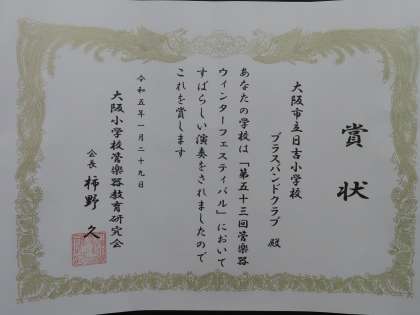 賞状
大阪市立日吉小学校
ブラスバンドクラブ 殿
あなたの学校は「第五十三回管楽器
ウィンターフェスティバル」において
すばらしい演奏をされましたので
これを賞します
令和五年一月二十九日
大阪小学校管楽器教育研究会
会長 柿野 久